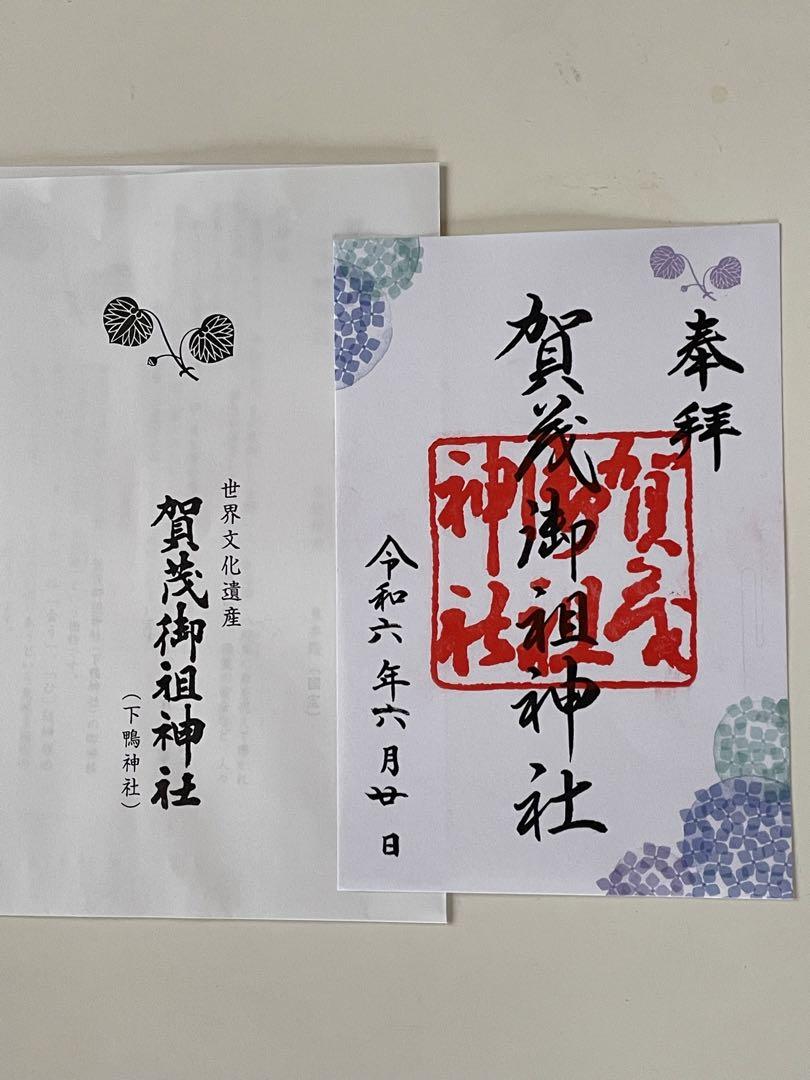 世界文化遺産
賀茂御祖神社
(下鴨神社)
奉拝
賀茂御祖神社
賀茂
御祖
神社
令和六年六月廿日